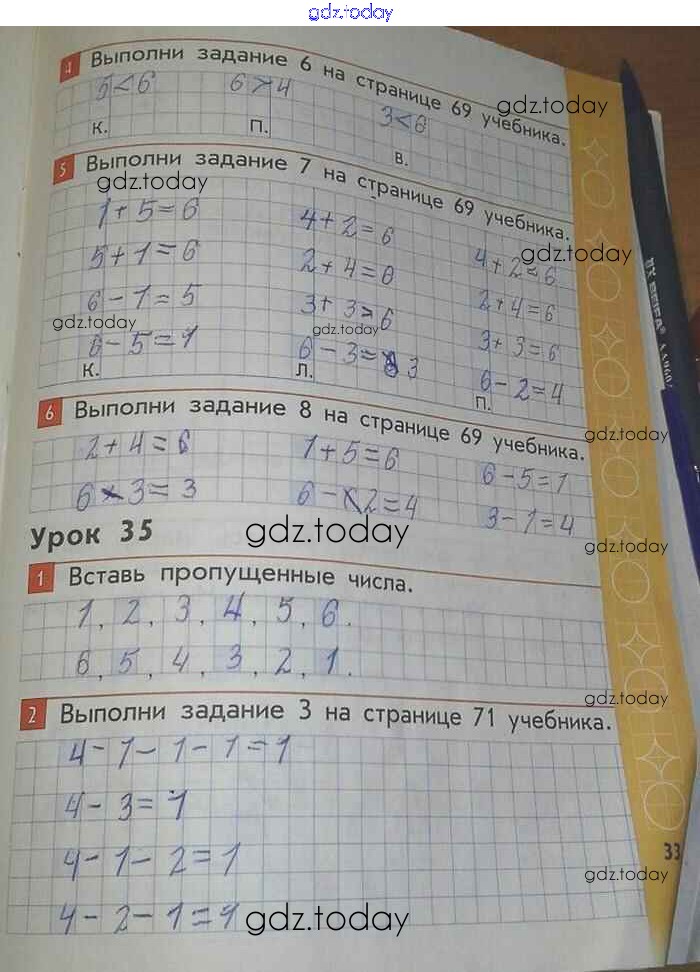 gdz.today
4 Выполни задание 6 на странице 69 учебника.
5<6 6>4 3<6
gdz.today
К. П. В.
5 Выполни задание 7 на странице 69 учебника.
gdz.today
1+5=6 4+2=6 4+2=6
gdz.today
5+1=6 2+4=6 2+4=6
6-1=5 3+3=6 3+3=6
gdz.today gdz.today
6-5=1 6-3=3 6-2=4
К. Л. П.
6 Выполни задание 8 на странице 69 учебника.
gdz.today
2+4=6 1+5=6 6-5=1
6-3=3 6-2=4 3-1=4
Урок 35 gdz.today
gdz.today
1 Вставь пропущенные числа.
1, 2, 3, 4, 5, 6.
6, 5, 4, 3, 2, 1.
gdz.today
2 Выполни задание 3 на странице 71 учебника.
4-1-1-1=1
4-3=1
4-1-2=1
33
gdz.today
4-2-1=1 gdz.today